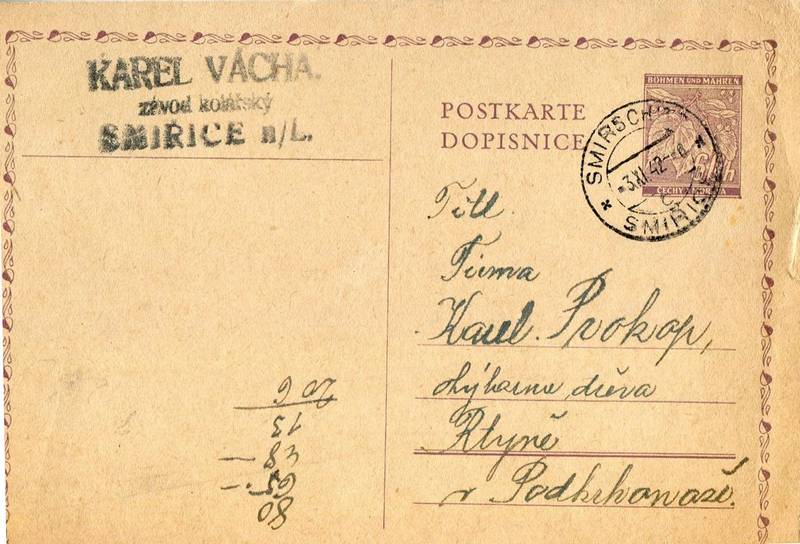 KAREL VÁCHA.
závod kolářský
SMIŘICE n/L.
POSTKARTE
DOPISNICE
BÖHMEN UND MÄHREN
60h
ČECHY A MORAVA
3.XI.42
SMIŘICE
Titl.
Firma
Karel Prokop,
ohýbárna dřeva
Rtyně
v Podkrkonoší.
80
65.-
48-
13
206